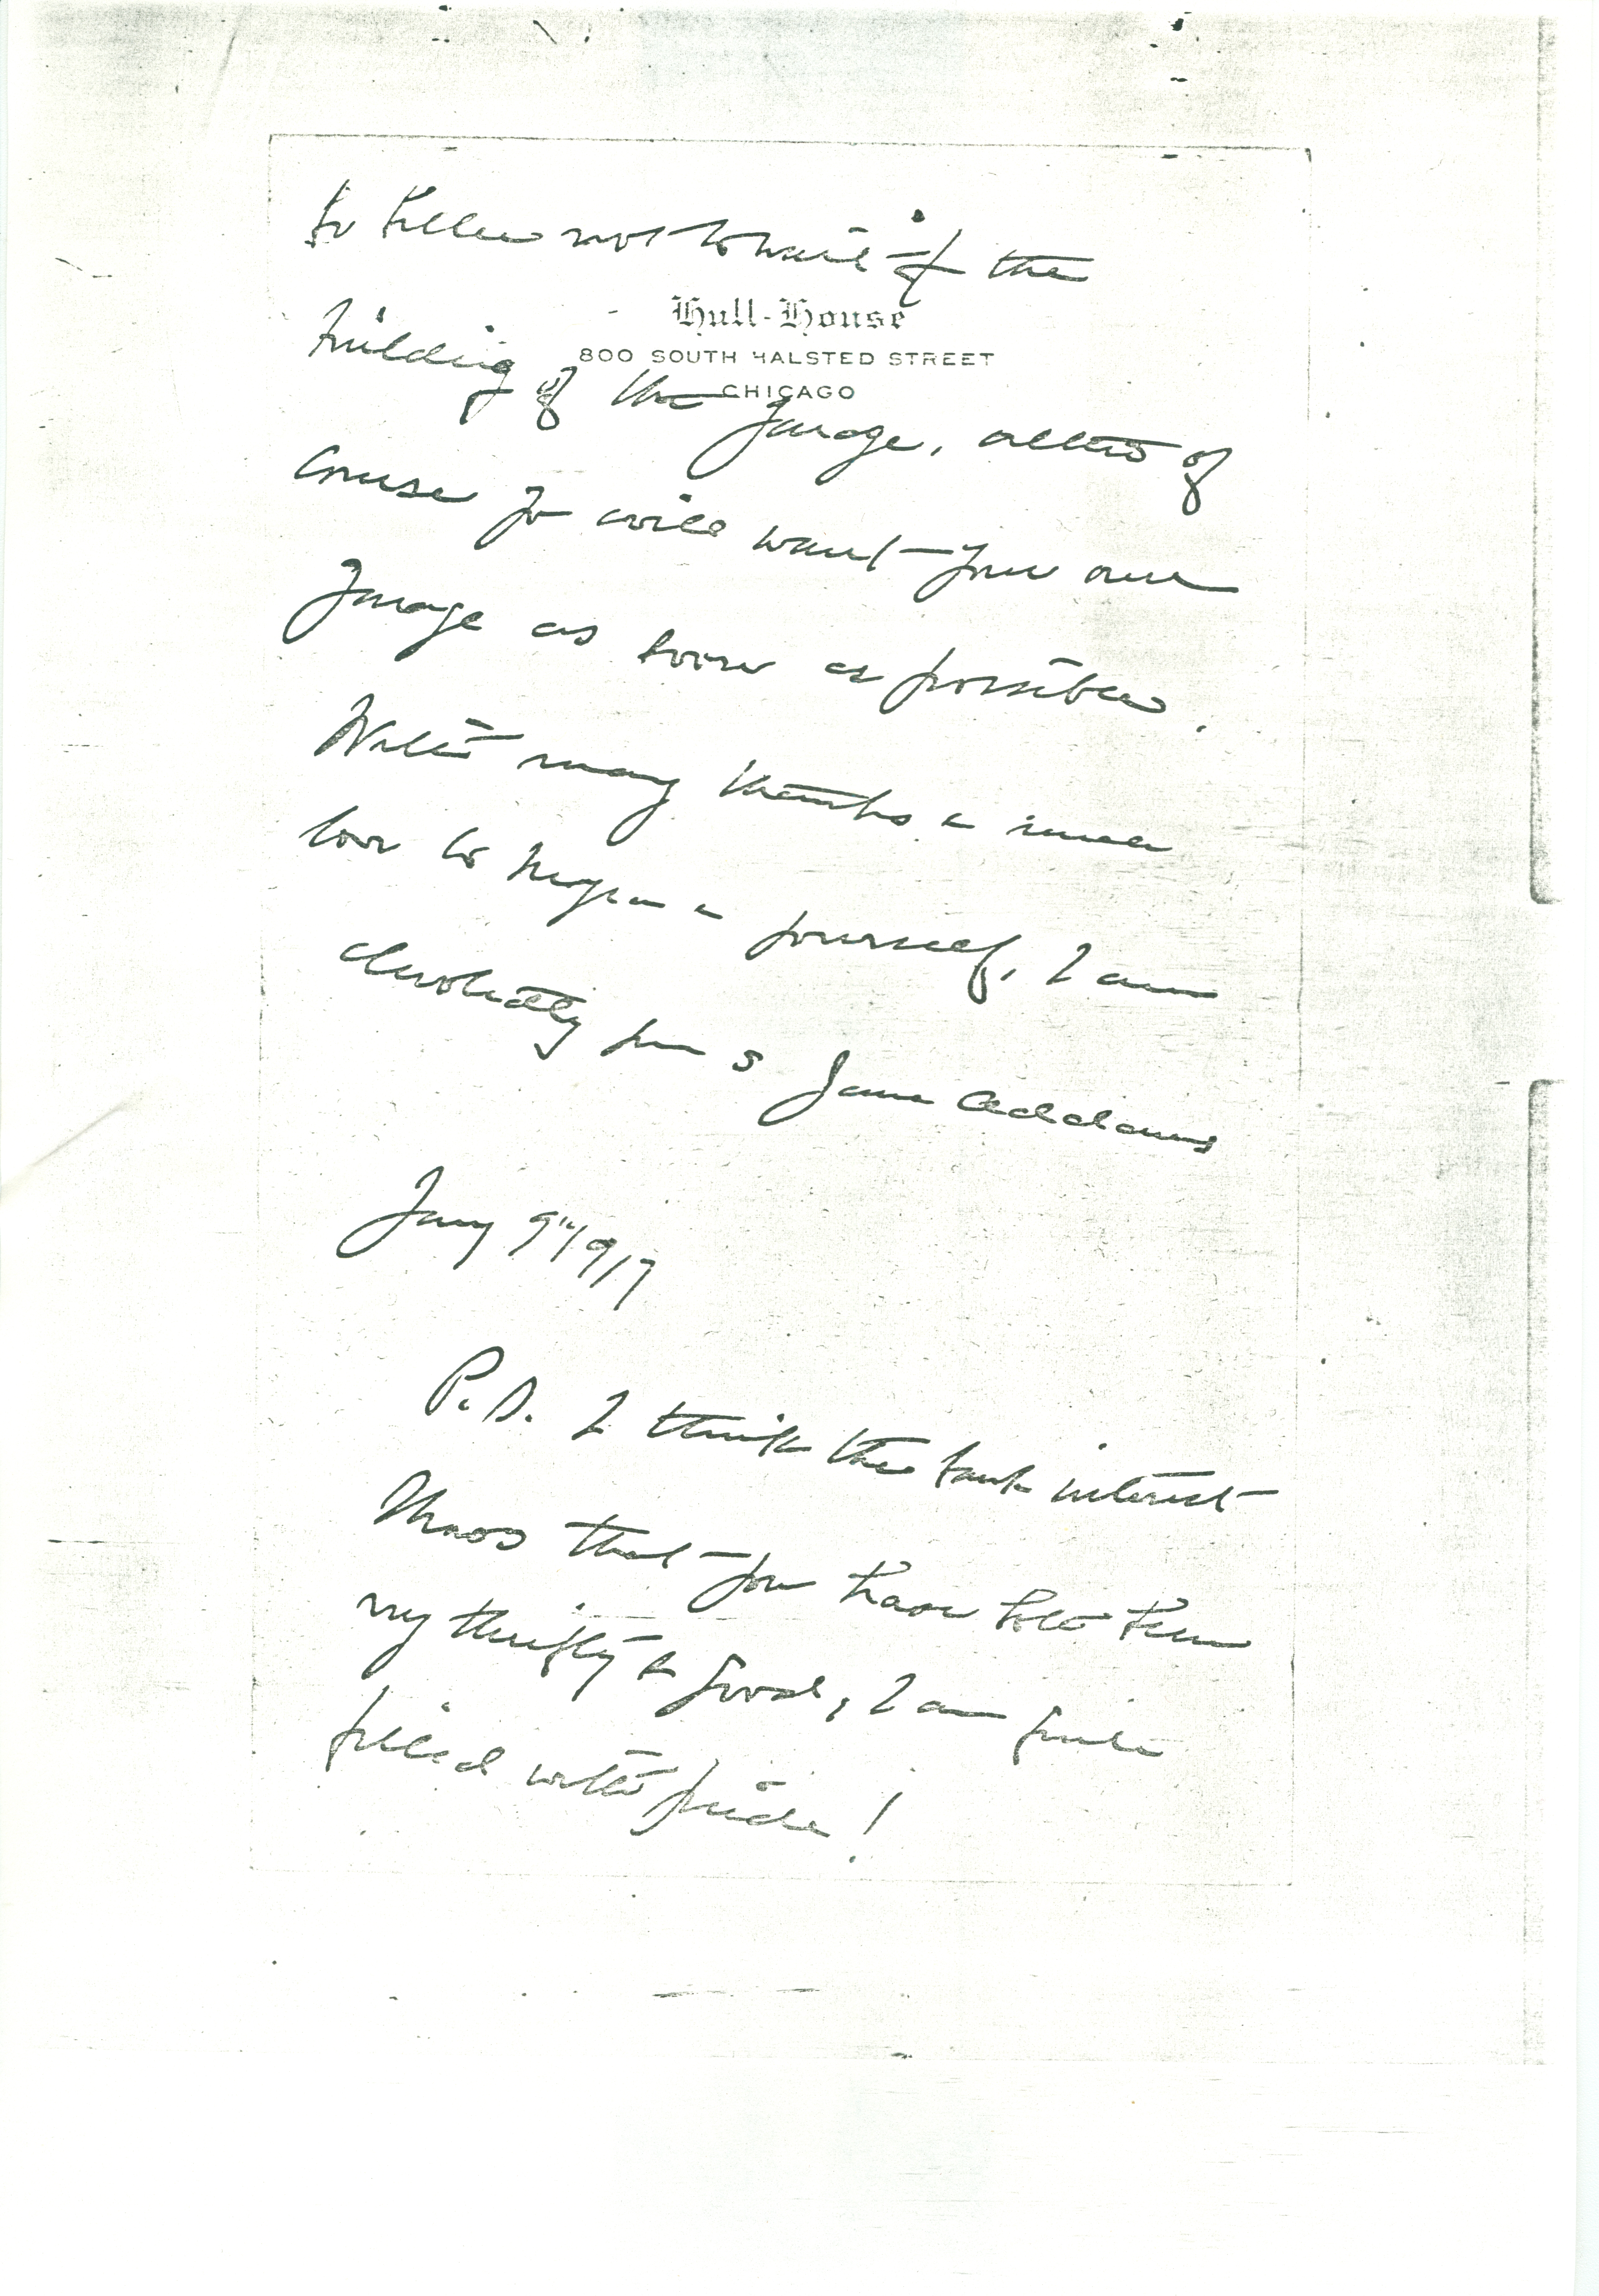 to Helen not to wait for the
Hull-House
800 SOUTH HALSTED STREET
CHICAGO
building of the garage, altho of
course yo will want your own
garage as soon as possible.
With many thanks & much
love to & yourself, I am
devotedly yours Jane Addams
Jany 9" 1917
P.S. I think the bank interest
shows that you have been
my thrifty & good, I am quite
filled with pride!